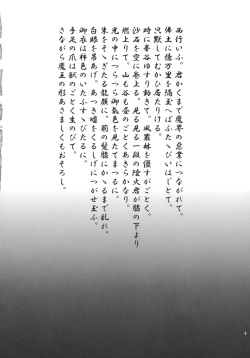 西行いふ、君かくまで魔界の悪業につながれて。
佛土に億万里を隔玉へばふたゝびいはじとて。
只黙してむかひ居たりける。
時に峯谷ゆすり動きて。風叢林を僵すがごとく。
沙石を空に巻上る。見る見る一段の陰火君が膝の下より
燃上りて。山も谷も昼のごとくあきらかなり。
光の中につらつら御気色を見たてまつるに。
朱をそゝぎたる龍顔に。荊の髪膝にかゝるまで乱れ。
白眼を吊あげ。あつき嘘をくるしげにつがせ玉ふ。
御衣は柿色のいたふすゝびたるに。
手足の爪は獣のごとく生のびて。
さながら魔王の形あさましくもおそろし。